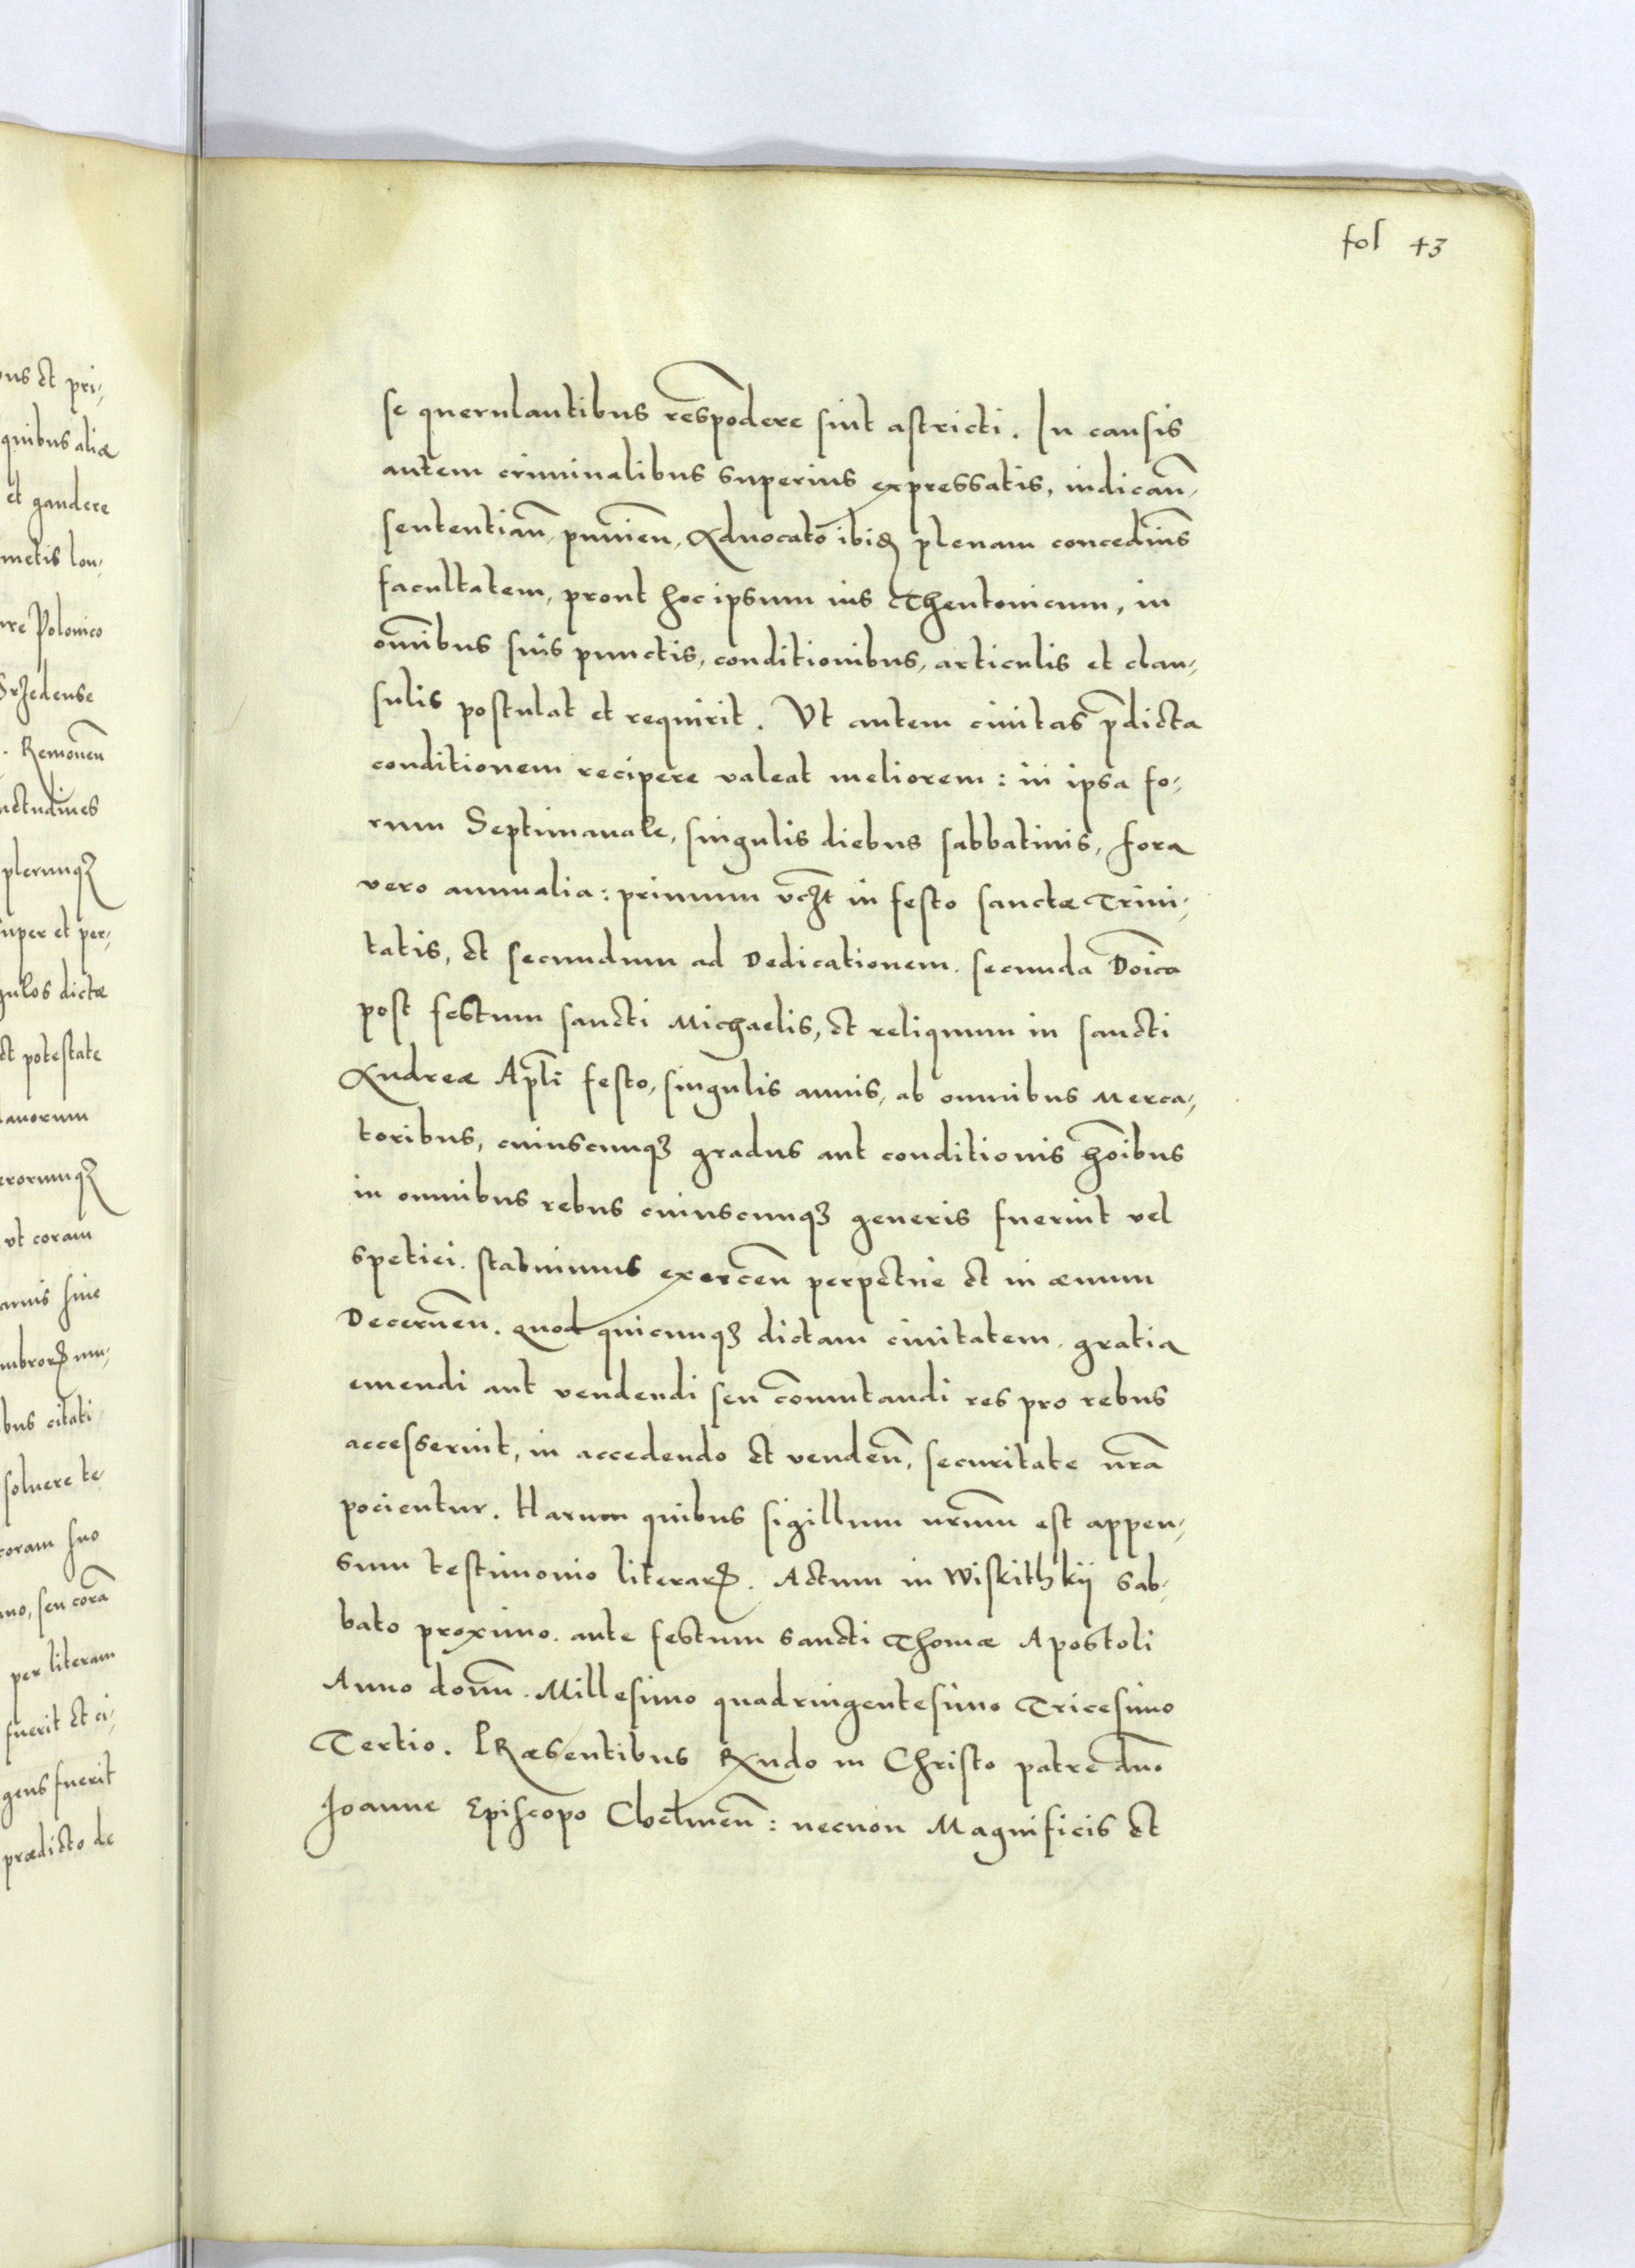 fol 43
se querulantibus respōdere sint astricti. In causis
autem criminalibus superius expressatis, iudicań,
sententiań, punień, Aduocato ibid plenam concedim̄s
facultatem, prout hoc ipsum ius Theutonicum, in
om̄ibus suis punctis, conditionibus, articulis et clau-
sulis postulat et requirit. Vt autem ciuitas p̄dicta
conditionem recipere valeat meliorem: in ipsa fo-
rum Septimanale, singulis diebus sabbatinis, fora
vero annualia: primum vcꝫt in festo sanctæ Trini-
tatis, et secundum ad Dedicationem. secunda Doīca
post festum sancti Michaelis, et reliquum in sancti
Andreæ Apl̄i festo, singulis annis, ab omnibus Merca-
toribus, cuiuscunqꝫ gradus aut conditionis hoībus
in omnibus rebus cuiuscunqꝫ generis fuerint vel
spetiei. statuimus exerceń perpetue et in æuum
Decerneń. quod quicunqꝫ dictam ciuitatem. gratia
emendi aut vendendi seu com̄utandi res pro rebus
accesserint, in accedendo et vendeń, securitate nr̄a
pocientur. Harum quibus sigillum nrm̄ est appen-
sum testimonio literarꝝ. Actum in Wiskithkij Sab-
bato proximo. ante festum sancti Thomæ Apostoli
Anno domń. Millesimo quadringentesimo Tricesimo
Tertio. PRæsentibus Rx̄ndo in Christo patre dn̄o
Joanne Episcopo Chelmeń: necnon Magnificis et
ous et pri-
quibus aliæ
et gaudere
metis lon-
ure Polonico
Srzedense
. Remoueń
uctudines
plerunqꝫ
super et per-
gulos dictæ
et potestate
lanorum
erorumqꝫ
vt coram
amis siue
mbrorꝝ mu-
bus citati
soluere te-
coram suo
uno, seu corā
per literam
fuerit et ci-
gens fuerit
prædicto de